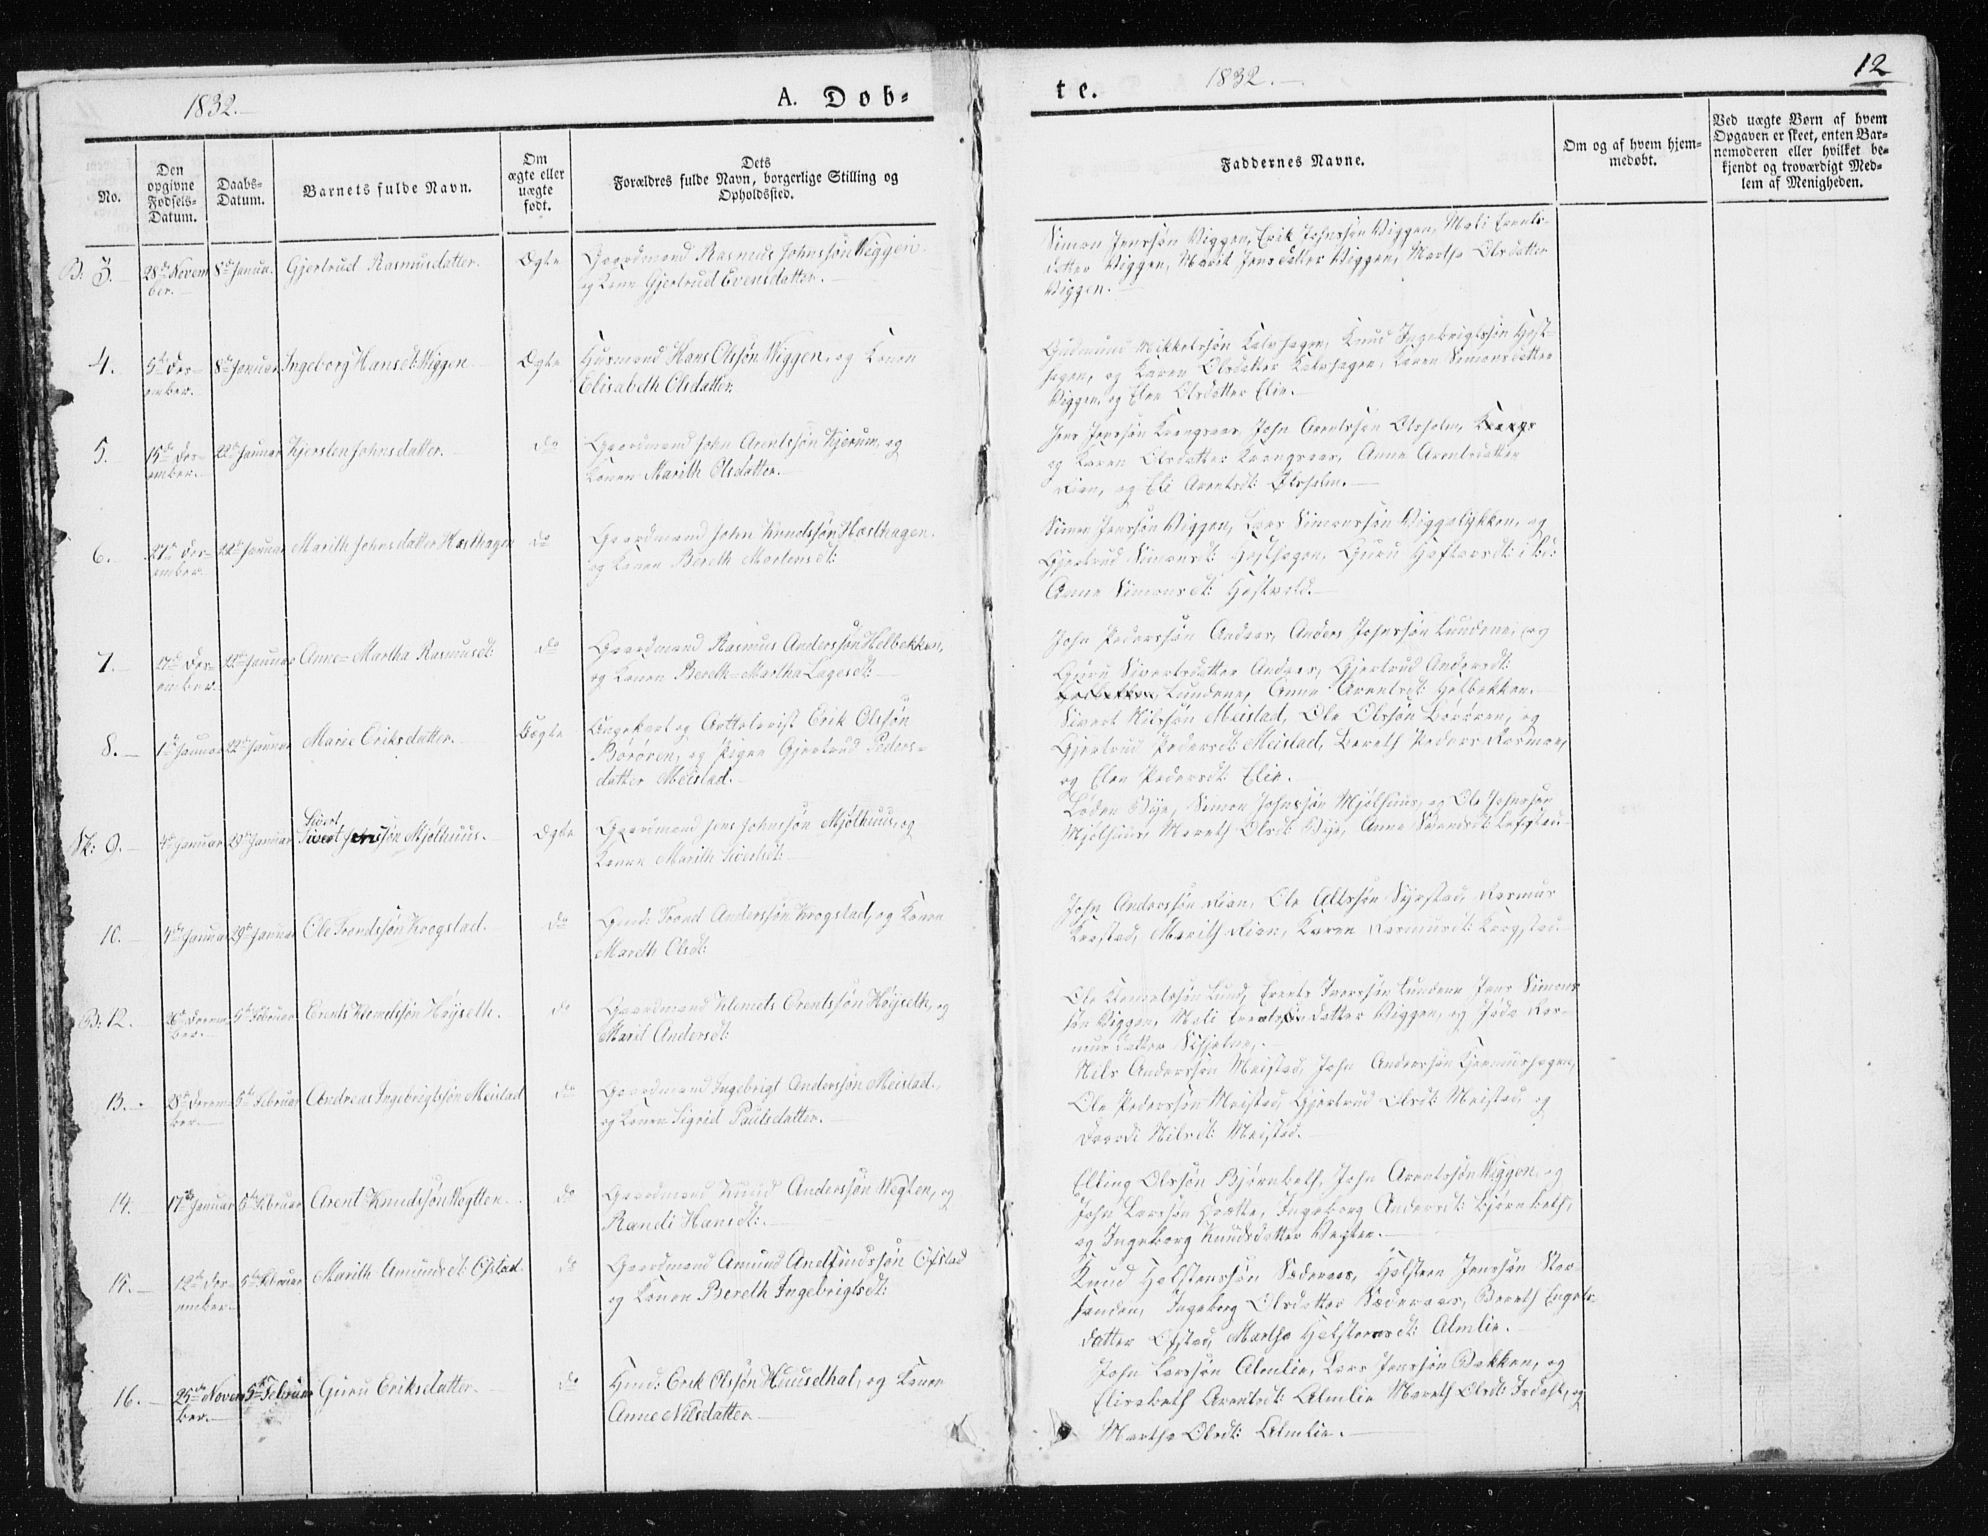 1832.
A. Døb-
te.
1832.
12
No.
Den opgivne Fødsels-Datum.
Daabs-Datum.
Barnets fulde Navn.
Om ægte eller uægte født.
Dets
Forældres fulde Navn, borgerlige Stilling og
Opholdssted.
Faddernes Navne.
Om og af hvem hjem-
medøbt.
Ved uægte Børn af hvem
Opgaven er skeet, enten Bar-
nemoderen eller hvilket be-
kjendt og troværdigt Med-
lem af Menigheden.
B. 3. 28de Novem-
ber.
8de Janua.
Gjertrud Rasmusdatter.
Ægte
Gaardmand Rasmus Johnssøn Viggen
og Kone Gjertrud Evensdatter.
Simon Jenssøn Viggen, Erik Johnssøn Viggen, Mali Erents-
datter Viggen, Marit Jensdatter Viggen, Martha Olsdatter
Viggen.
4. 5te Dec-
ember.
8de Januar
Ingeborg Hansdt: Viggen
Ægte
Husmand Hans Olssøn Viggen, og Konen
Elisabeth Olsdatter.
Gudmund Mikkelssøn Kalvhagen, Knud Ingebrigtssøn Høst-
hagen, og Karen Olsdatter Kalvhagen, Karen Simonsdatter
Viggen, og Elen Olsdatter Elie.
5. 15de Dec-
ember.
22de Januar
Kjersten Johnsdatter.
do
Gaardmand John Arentssøn Kjerum, og
Konen Marith Olsdatter.
Jens Jenssøn Krangsaas, John Arentssøn Olsholm,
og Karen Olsdatter Krangsaas, Anne Arentsdatter
Rian, og Eli Arentsdt: Olsholm.
6. 27de Dec-
ember.
22de Januar
Marith Johnsdatter Hæsthagen
do
Gaardmand John Knudssøn Hæsthagen.
og Konen Bereth Mortensdt:
Simon Jenssøn Viggen, Lars Simonssøn Viggalykken, og
Gjertrud Simonsdt: Hæsthagen, Guru Haftorsdt: ibid:
Anne Simonsdt: Høstvold.
7. 17de Dec-
ember.
22de Januar
Anne-Martha Rasmusdt:
do
Gaardmand Rasmus Anderssøn Helbekken,
og Konen Bereth-Martha Lagesdt:
John Pederssøn Andaas, Anders Johnssøn Lundene, og
Guru Sivertsdatter Andaas, Gjertrud Andersdt:
Lundene, Anne Arentsdt: Helbekken.
8. 1ste Januar
22de Januar
Marie Eriksdatter.
Uægte
Ungekarl og Erik Olssøn
Børøsen, og Pigen Gjertrud Peders-
datter Meistad.
Sivert Nilssøn Meistad, Ole Olssøn Børøsen, og
Gjertrud Pedersdt: Meistad, Bereth Peders Rosmoe,
og Elen Pedersdt: Elie.
Sk: 9. 4de Januar
29de Januar
Sivert
Sivert Jenssøn Mjølhuus.
Ægte
Gaardmand Jens Johnssøn Mjølhuus, og
Konen Marith Sivertsdt:
Loden Bye, Simon Johnssøn Mjølhuus, og Ole Johnssøn
Mjølhuus, Mareth Olsdt: Bye, Anne Svendsdt:
10. 4de Januar
29de Januar
Ole Trondssøn Krogstad.
do
Gmd: Trond Anderssøn Krogstad, og Konen
Mareth Olsdt:
John Anderssøn Rian, Ole Oltssøn Syrstad, Rasmus
Krogstad, Marith Rian, Karen Rasmusdt: Krogstad.
B: 12. 26de Decem-
ber.
5te Februar.
Erents Klemetssøn Høyseth.
do
Gaardmand Klemets Erentssøn Høyseth, og
Marit Andersdt:
Ole Klemetssøn Lund, Erents Iverssøn Lundene, Jens Simons-
søn Viggen, Mali Erentsdatter Viggen, og Joda Ras-
musdatter
13. 8de Decem-
ber.
5te Februar
Andreas Ingebrigtssøn Meistad
do
Gaardmand Ingebrigt Anderssøn Meistad,
og Konen Sigrid Paulsdatter.
Nils Anderssøn Meistad, John Anderssøn
Ole Pederssøn Meistad, Gjertrud Olsdt: Meistad, og
Dordi Nilsdt: Meistad.
14. 17de Januar
5te Februar
Arent Knudssøn Vegtten.
do
Gaardmand Knud Anderssøn Vegten, og
Randi Hansdt:
Elling Olssøn Bjørnbeth, John Arentssøn Viggen, og
John Larssøn Grøtte, Ingeborg Andersdt: Bjørnbeth,
og Ingeborg Knudsdatter Vegten.
15. 12de Dec-
ember.
5te Februar
Marith Amundsdt: Ofstad.
do
Gaardmand Amund Andfindssøn Ofstad
og Konen Bereth Ingebrigtsdt:
Knud Holstenssøn Sæderaas, Holsten Jenssøn Nor-
sanden, Ingeborg Olsdatter Sæderaas, Bereth Engels-
datter Ofstad, Martha Holstensdt: Almlie.
16. 25de Novem-
ber.
5te Februar
Guru Eriksdatter.
do
Hmd: Erik Olssøn Huusdhal, og Konen
Anne Nilsdatter
John Larssøn Almlie, Lars Jenssøn Bakken, og
Elisabeth Arentsdt: Almlie, Mareth Olsdt: og
Martha Olsdt: Almlie.